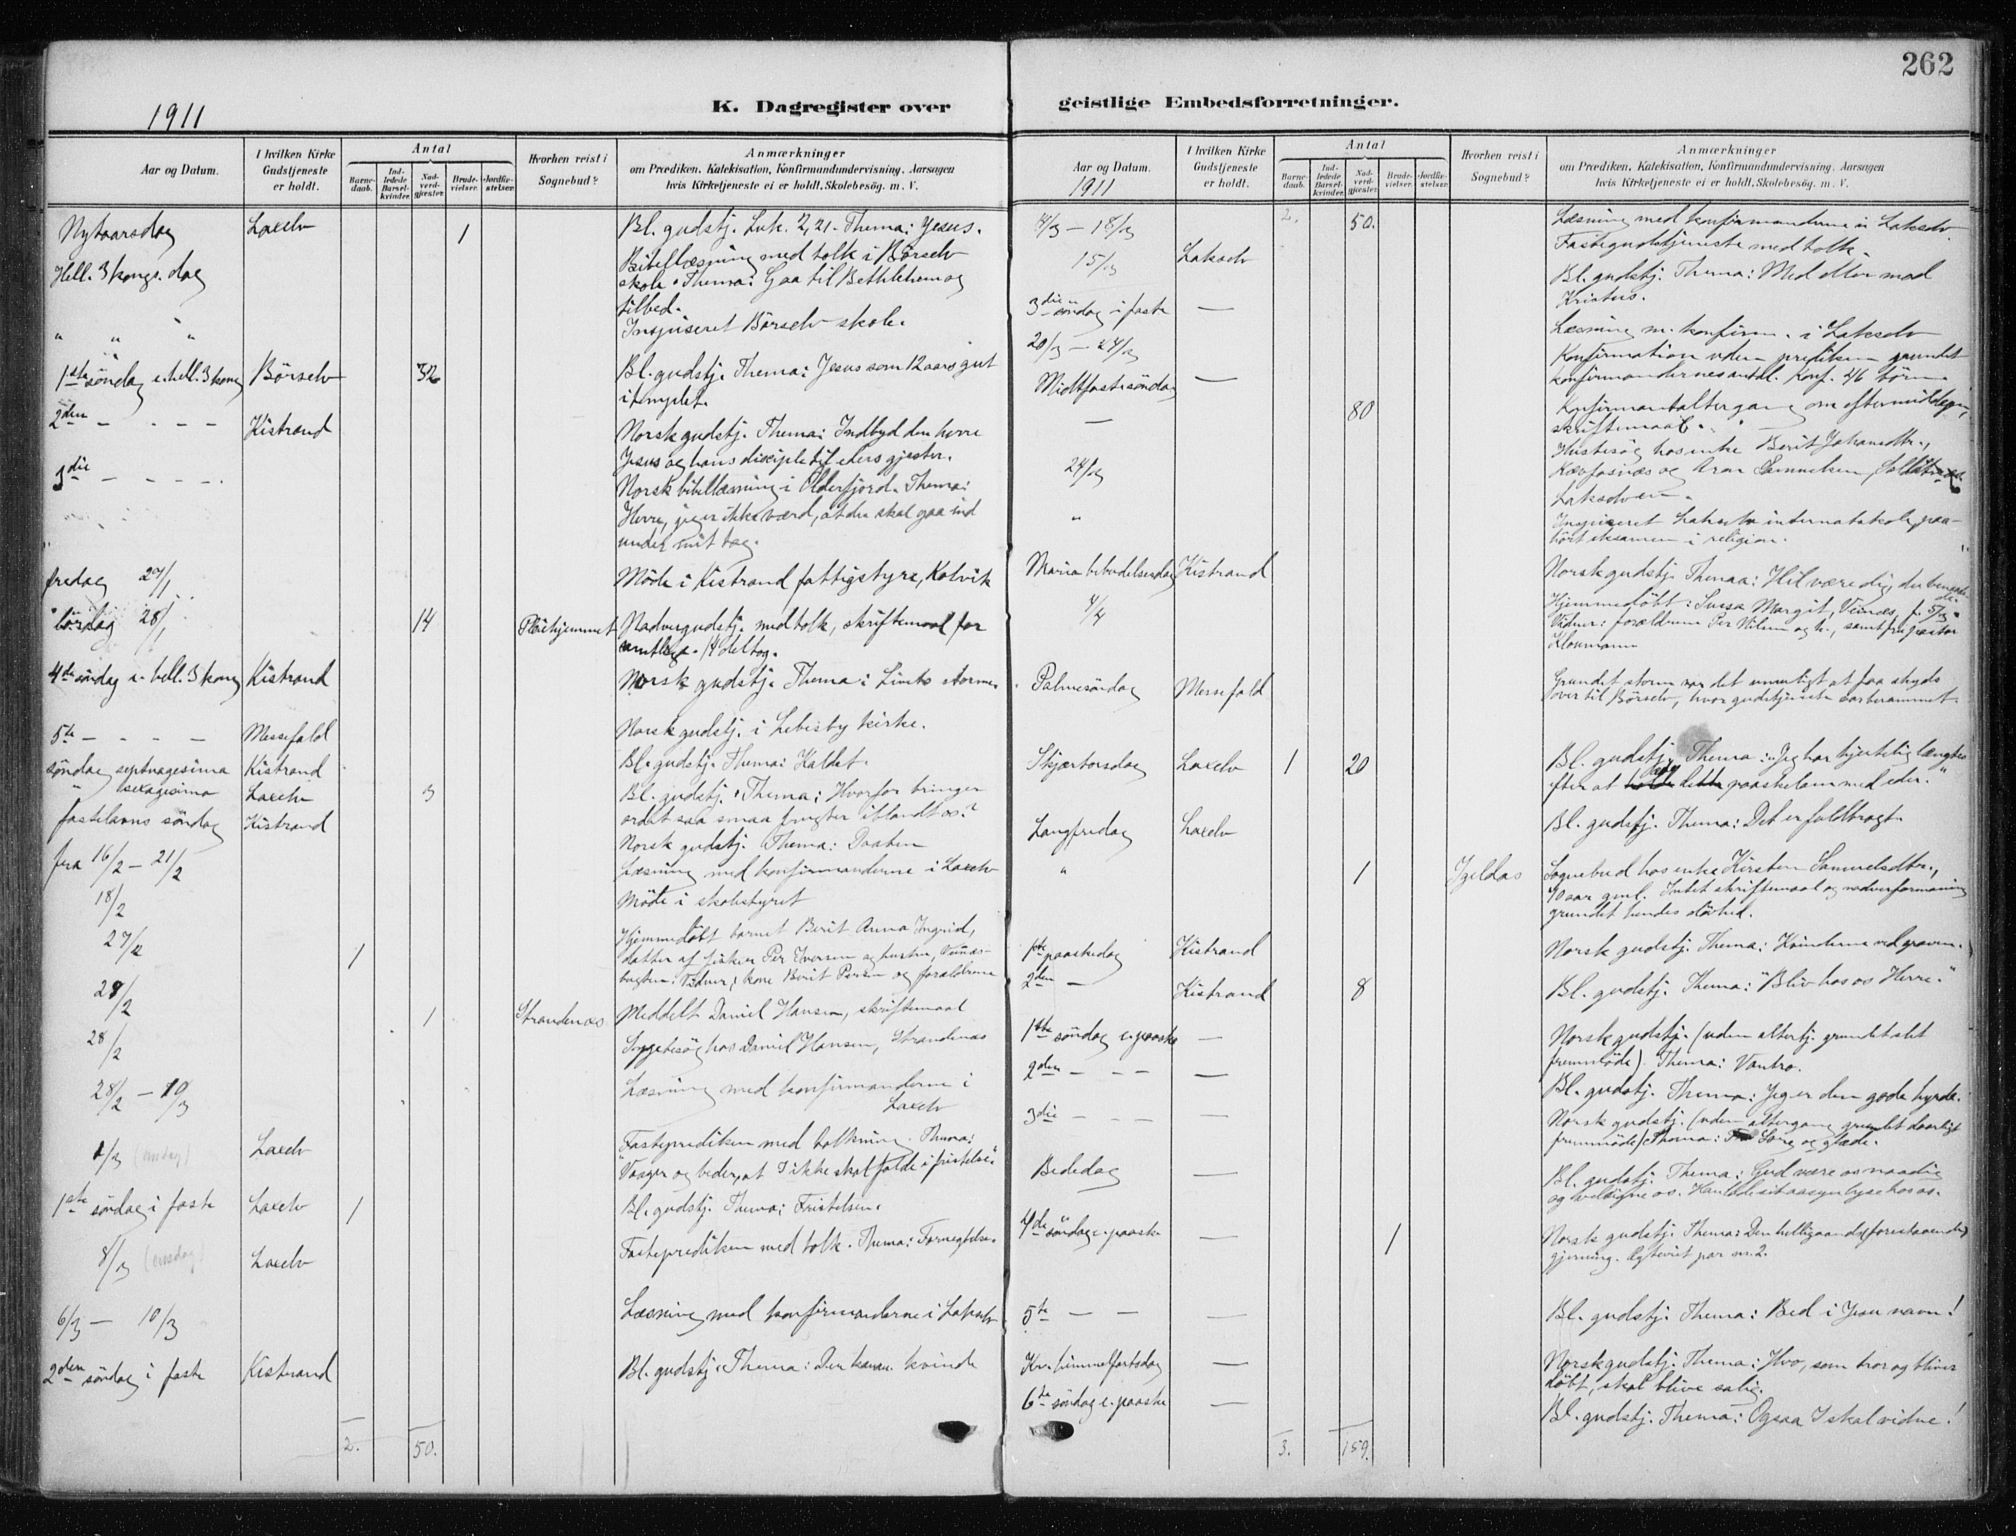 262
1911
K. Dagregister over geistlige Embedsforretninger.
Aar og Datum.
I hvilken Kirke Gudstjeneste er holdt.
Antal
Barne-daab.
Ind-ledede Barsel-kvinder.
Nad-verd-gjester.
Brude-vielser.
Jordfæ-stelser.
Hvorhen reist i Sognebud?
Anmærkninger
om Prædiken, Katekisation, Konfirmandundervisning, Aarsagen
hvis Kirketjeneste ei er holdt, Skolebesøg, m. V.
Nytaarsdag Laxelv 1 Bl. gudstj. Luk. 2,21. Thema: Jesus.
Hell. 3 kongs. dag Bibellæsning med tolk i Börselv
skole. Thema: Gaa til Bethlehem og
tilbed.
" " " Inspiseret Börselv skole.
1ste söndag e. hell. 3 kong Börselv 32 Bl. gudstj. Thema: Jesus som 12 aars gut
i templet.
2den - - - - Kistrand Norsk gudstj. Thema: Indbyd den herre
Jesus og hans disciple til eders gjester.
3die - - - - Norsk bibellæsning i Olderfjord. Thema:
Herre, jeg er ikke værd, at du skal gaa ind
under mit tag.
fredag 27/1 Möde i Kistrand fattigstyre, Kolvik
lördag 28/1 14 Pleiehjemmet Nadvergudstj. med tolk, skriftemaal for
samtlige. 14 deltog.
4de söndag e. hell. 3 kong Kistrand Norsk gudstj. Thema: Livets storme.
5te - - - - Massefald Norsk gudstj. i Lebesby kirke.
söndag septuagesima Kistrand Bl. gudstj. Thema: Kaldet.
" sexagesima Laxelv 3 Bl. gudstj. Thema: Hvorfor bringer
ordet saa smaa frugter iblandt os?
fastelavns söndag Kistrand Norsk gudstj. Thema: Daaben
fra 16/2 - 21/2 Læsning med konfirmanderne i Laxelv
18/2 Möde i skolestyret
27/2 1 Hjemmedöbt barnet Berit Anna Ingrid,
datter af fisker Per Iversen og hustru,
Vidner: kone Berit Persen og forældrene
28/2 1 Strandenæs Meddelt Daniel Hansen, skriftemaal
28/2 Sygebesög hos Daniel Hansen, Strandenæs
28/2 - 10/3 Læsning med konfirmanderne i
Laxelv
1/3 (onsdag) Laxelv Fasteprediken med tolkning. Thema:
"Vaager og beder, at I ikke skal falde i fristelse".
1ste söndag i faste Laxelv 1 Bl. gudstj. Thema: Fristelsen.
8/3 (onsdag) Laxelv Fasteprediken med tolk. Thema: Fornegtelse.
6/3 - 10/3 Læsning med konfirmanderne i Lakselv
2den söndag i faste Kistrand Bl. gudstj. Thema: Den kanan. kvinde
2. 50.
Aar og Datum.
1911
I hvilken Kirke Gudstjeneste er holdt.
Antal
Barne-daab.
Ind-ledede Barsel-kvinder.
Nad-verd-gjester.
Brude-vielser.
Jordfæ-stelser.
Hvorhen reist i Sognebud?
Anmærkninger
om Prædiken, Katekisation, Konfirmandundervisning, Aarsagen
hvis Kirketjeneste ei er holdt, Skolebesøg, m. V.
2. 50.
14/3 - 18/3 Læsning med konfirmanderne i Lakselv
15/3 Lakselv Fastegudstjeneste med tolk.
3die söndag i faste — Bl. gudstj. Thema: Med eller mod
Kristus.
20/3 - 24/3 Læsning m. konfirm. i Lakselv
Midtfastesöndag — Konfirmation uden prediken grundet
konfirmandernes antal. Konf. 46 börn
— 80 Konfirmantaltergang om eftermiddagen,
skriftemaal.
24/3 Husbesög hos enke Berit Johansdtr.,
og Aron Samuelsen,
Lakselven.
" Inspiseret Lakselv internatskole, paa-
hört eksamen i religion.
Maria bebudelsesdag Kistrand Norsk gudstj. Thema: Hil være dig, du benaadede
4/4 Hjemmedöbt: Sussa Margit, f. 5/3.
Vidner: forældrene Per Nilsen og h., samt fru pastor
Kloumann
Palmesöndag Massefald Grundet storm var det umuligt at faa skyds
over til Börselv, hvor gudstjeneste var berammet.
Skjærtorsdag Laxelv 1 20 Bl. gudstj. Thema: "Jeg har hjertelig længtes
efter at æde dette paaskelam med eder."
Langfredag Laxelv Bl. gudstj. Thema: Det er fuldbragt.
" 1 Igeldas Sognebud hos enke Kirsten Samuelsdtr.,
90 aar gml. Intet skriftemaal og nadverformaning
grundet hendes dövhed.
1ste paaskedag Kistrand Norsk gudstj. Thema: Kvinderne ved graven.
2den - Kistrand 8 Bl. gudstj. Thema: "Bliv hos os Herre."
1ste söndag e. paaske — Norsk gudstj. (uden altertj. grundet slet
fremmöde). Thema: Vantro.
2den - - - — Bl. gudstj. Thema: Jeg er den gode hyrde.
3die - - - — Norsk gudstj. (uden altergang grundet daarligt
fremmöde) Thema: Sorg og glæde.
Bededag — Bl. gudstj. Thema: Gud være os naadig
og velsigne os. Han lade sit aasyn lyse hos os.
4de söndag e. paaske — 1 Norsk gudstj. Thema: Den helligaands (forestaaende)
gjerning. Egteviet par nr. 2.
5te - - — Bl. gudstj. Thema: Bed i Jesu navn!
Kr. himmelfartsdag — Norsk gudstj. Thema: Hvo, som tror og bliver
döbt, skal blive salig.
6te söndag e. paaske — Bl. gudstj. Thema: Ogsaa I skal vidne!
3. 159.